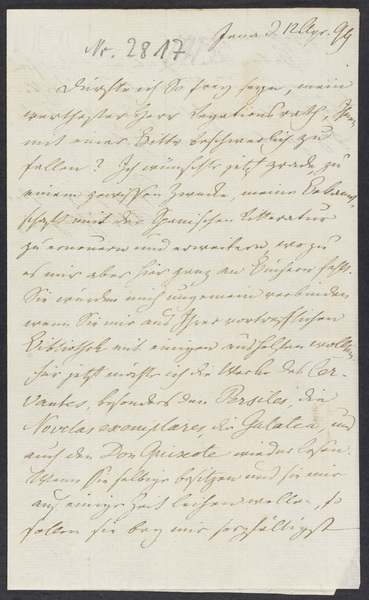 Nr. 2817
Jena d. 12 Apr. 99
Dürfte ich so frey seyn, mein
werthester Herr Legationsrath, Ihnen
mit einer Bitte beschwerlich zu
fallen? Ich wünschte jetzt grade zu
einem gewissen Zwecke, meine Bekannt-
schaft mit der Spanischen Litteratur
zu erneuern und erweitern, wozu
es mir aber hier ganz an Büchern fehlt.
Sie würden mich ungemein verbinden
wenn Sie mir aus Ihrer vortrefflichen
Bibliothek mit einigen aushelfen wollten.
Für jetzt möchte ich die Werke des Cer-
vantes, besonders den Persiles, die
Novelas exemplares, die Galatea, und
auch den Don Quixote wieder lesen.
Wenn Sie selbige besitzen und sie mir
auf einige Zeit leihen wollen, so
sollen sie bey mir sorgfältigst